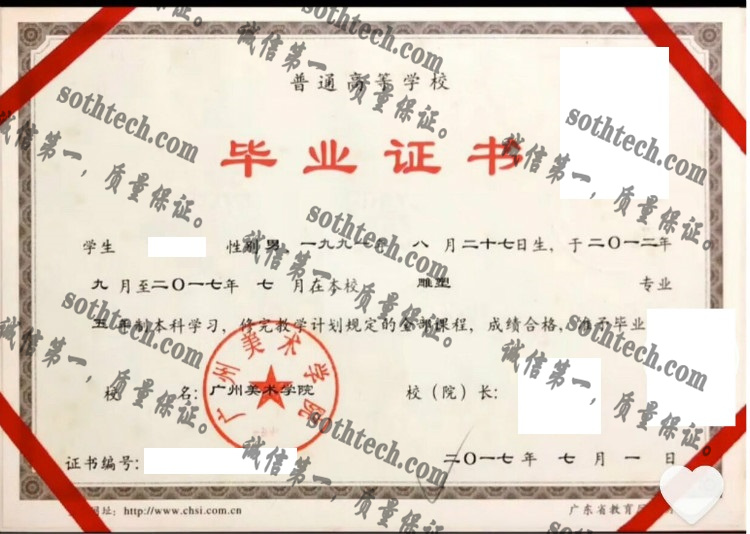 sothtech.com
诚信第一，质量保证。
普通高等学校
sothtech.com
诚信第一，质量保证。
sothtech.com
诚信第一，质量保证。
毕业证书
学生 性别 男 一九九 年 八 月二十七日生，于二〇一二年
sothtech.com
诚信第一，质量保证。
九 月至二〇一七年 七 月在本校 雕塑 专业
五年制本科学习，修完教学计划规定的全部课程，成绩合格，准予毕业
sothtech.com
诚信第一，质量保证。
sothtech.com
诚信第一，质量保证。
广州美术学院
校 名：广州美术学院 校（院）长：
sothtech.com
诚信第一，质量保证。
证书编号： 二〇一七 年 七 月 一 日
网址：http://www.chsi.com.cn 广东省教育厅